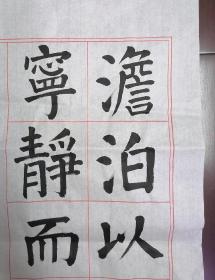 澹泊以
寧靜而